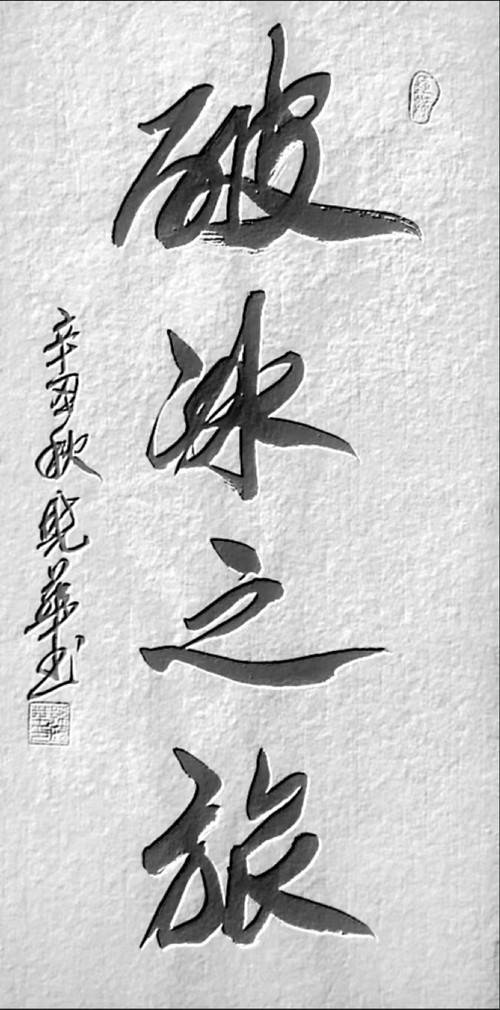 破冰之旅
辛丑秋晓华书